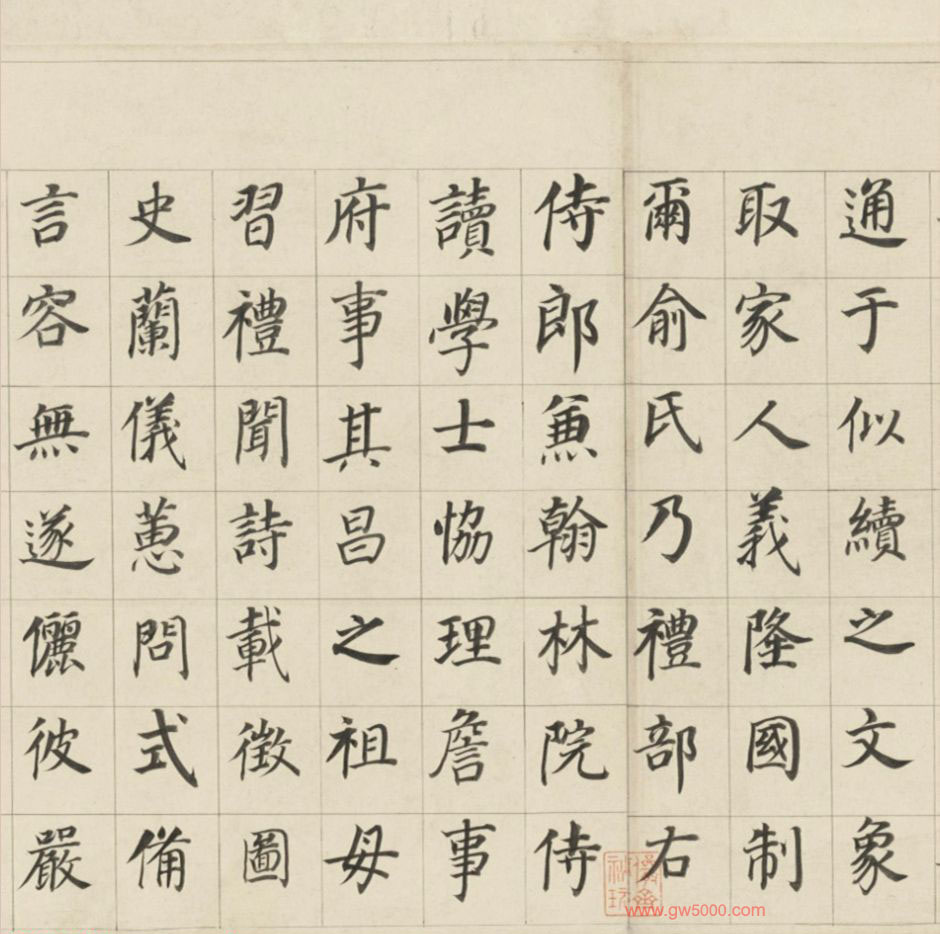 通于似續之文象
取家人義隆國制
爾俞氏乃禮部右
侍郎兼翰林院侍
讀學士協理詹事
府事其昌之祖母
習禮聞詩載徵圖
史蘭儀蕙問式備
言容無遂儷彼嚴
www.gw5000.com